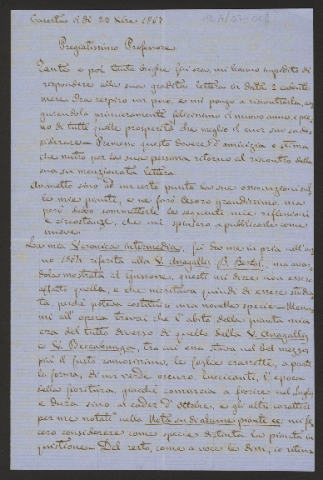 Caserta li di 29 Xbre 1867
Pregiatissimo Professore
Tante e poi tante brighe finora, mi hanno impedito di
rispondere alla sua gradita lettera in data 2 cadente
mese. Ora respiro un poco, e mi pongo a riscontrarla, au
gurandole primieramente felicissimo il nuovo anno, e pie
no di tutte quelle prosperità che meglio il cuor suo sa de
siderare. Premesso questo dovere d'amicizia e stima
che nutro per la sua persona ritorno al riscontro della
sua menzionata lettera.
Ammetto sino ad un certo punto le sue osservazioni sul
le mie piante, e ne farò tesoro grandissimo, ma
però debbo sommetterle le seguenti mie riflessioni
e circostanze, che mi spinsero a pubblicarle come
nuove.
La mia Veronica intermedia, fu da me in pria nell'an
no 1857 riferita alla V. Anagallis
dola mostrata al Gussone, questi mi disse non essere
affatto quella, e che meritava quindi di essere studia
ta, perché poteva costituire una novella specie.
mi all'opera trovai che l'abito della pianta mia
era del tutto diverso di quello della V. Anagallis
e V. Beccabunga, tra cui essa stava nel bel mezzo
più il fusto ramosissimo, le foglie crassette, a parte
la forma, di un verde oscuro, luccicanti, l'epoca
della fioritura, giacché comincia a fiorire nel luglio
e dura sino al cader d'ottobre, e gli altri caratteri
per me notati nella Nota su di alcune piante ec. mi fe
cero considerare come specie distinta la pianta in
quistione. Del resto, come a voce le dissi, io ritenn